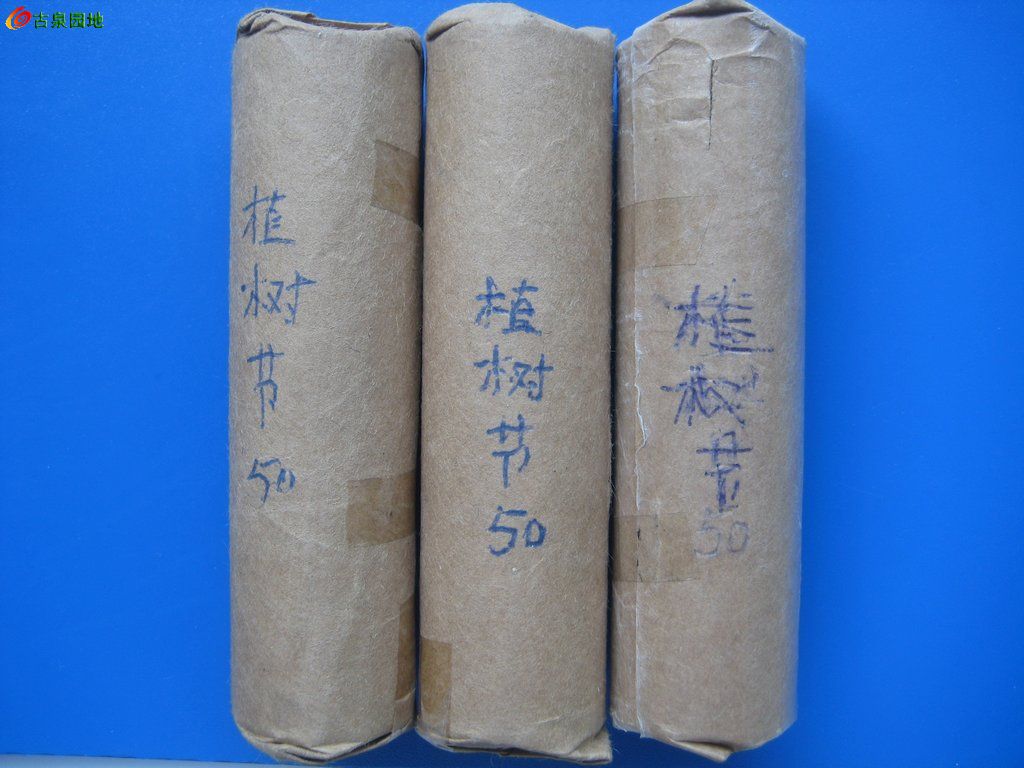 古泉园地
植树节50
植树节50
植树节50